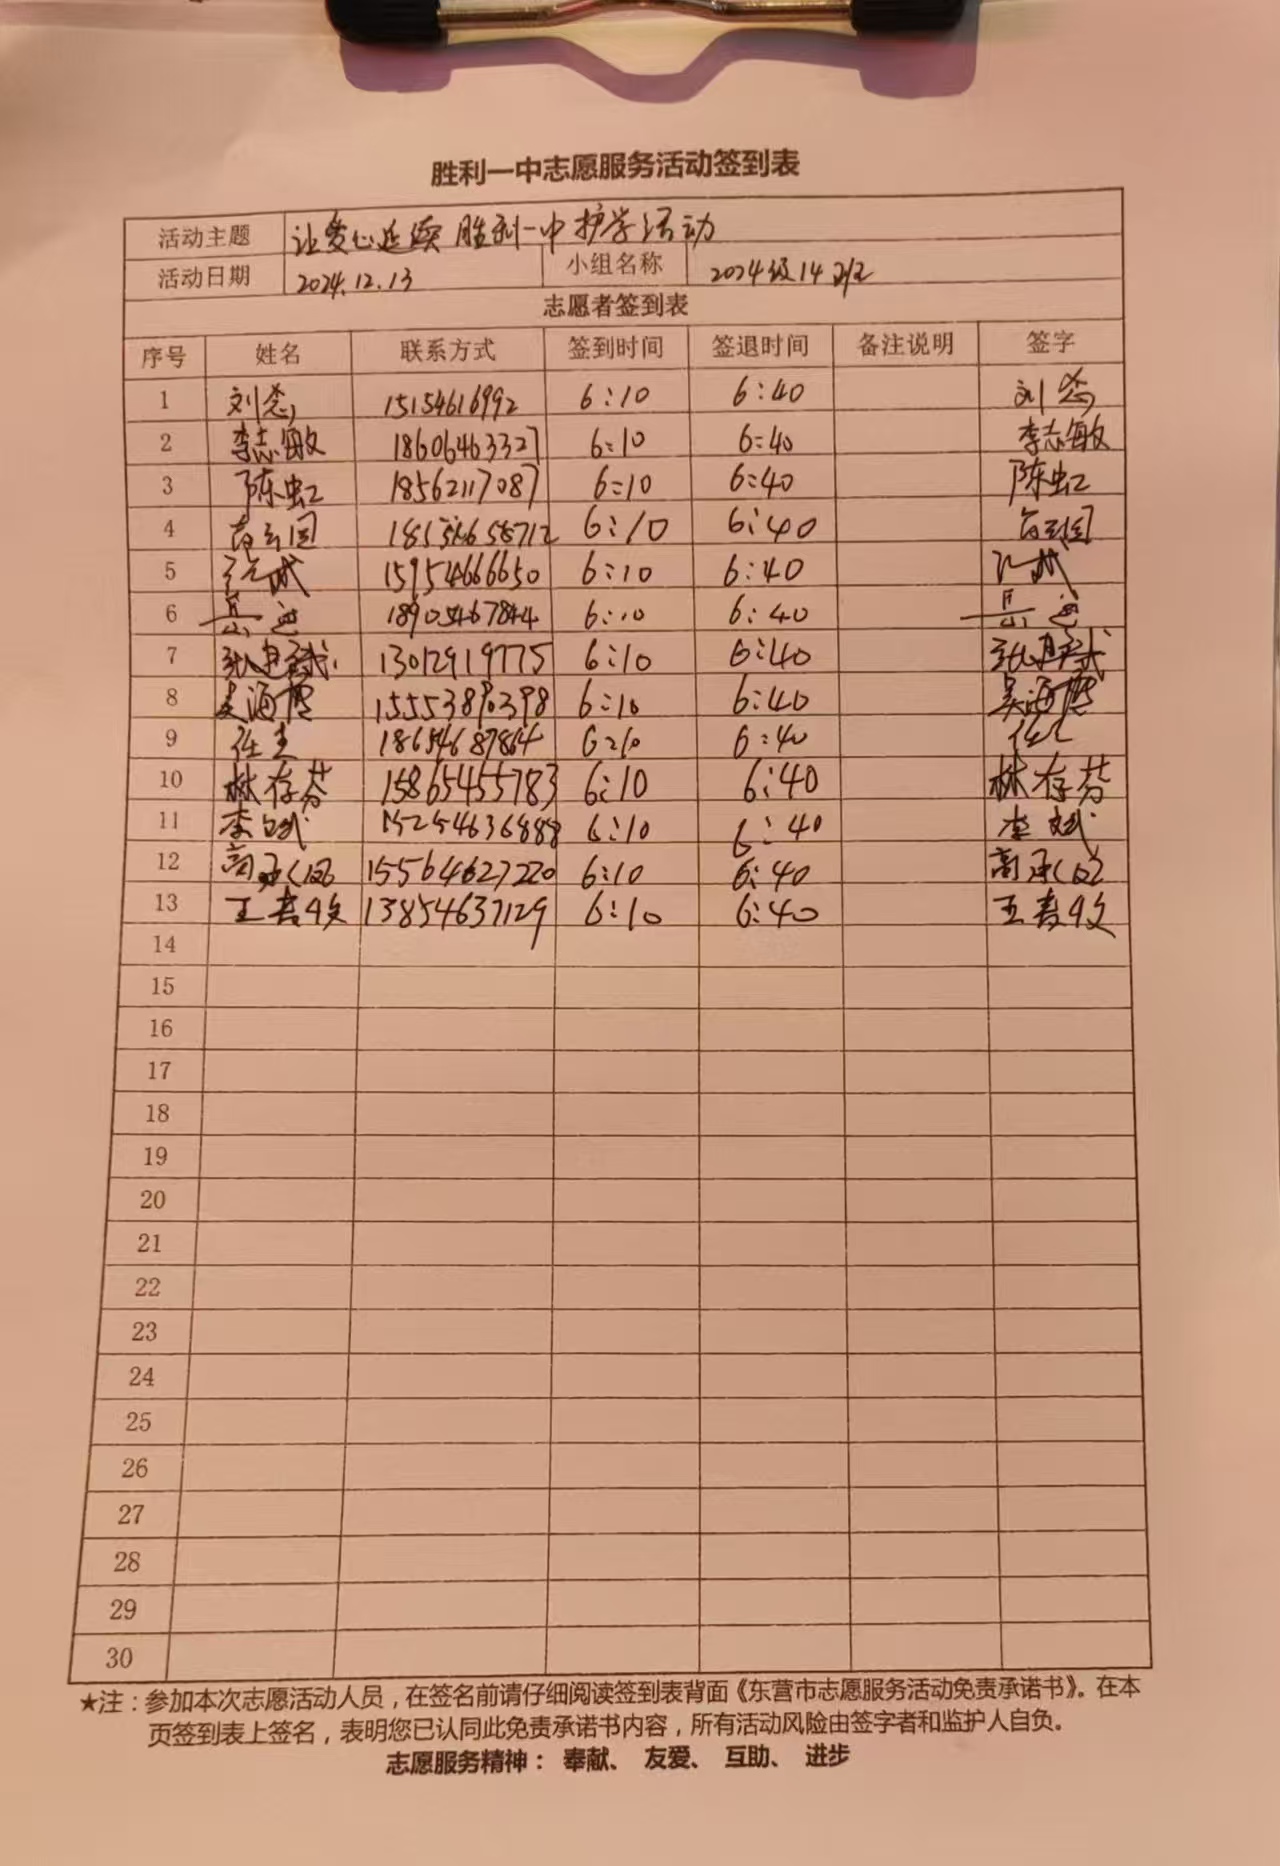 胜利一中志愿服务活动签到表
活动主题 让爱心延续 胜利一中护学活动
活动日期 2024.12.13 小组名称 2024级14班
志愿者签到表
序号 姓名 联系方式 签到时间 签退时间 备注说明 签字
1 刘 15154616992 6:10 6:40 刘
2 李志敏 18606463327 6:10 6:40 李志敏
3 陈虹 18562117087 6:10 6:40 陈虹
4 6:10 6:40
5 15954666650 6:10 6:40
6 18905467844 6:10 6:40
7 13012919775 6:10 6:40
8 吴海 6:10 6:40 吴海
9 任 18654687864 6:10 6:40 任
10 林存芬 15865455783 6:10 6:40 林存芬
11 李斌 15254636888 6:10 6:40 李斌
12 高 15564627220 6:10 6:40 高
13 王春 13854637129 6:10 6:40 王春
14
15
16
17
18
19
20
21
22
23
24
25
26
27
28
29
30
★注：参加本次志愿活动人员，在签名前请仔细阅读签到表背面《东营市志愿服务活动免责承诺书》。在本
页签到表上签名，表明您已认同此免责承诺书内容，所有活动风险由签字者和监护人自负。
志愿服务精神： 奉献、 友爱、 互助、 进步